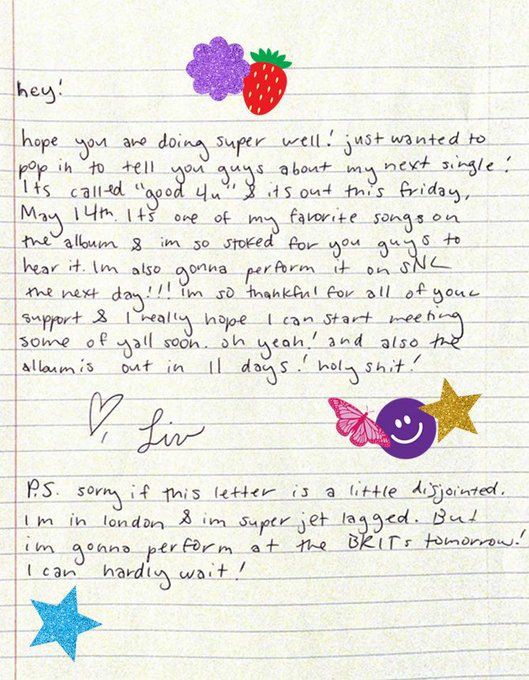 hey!
hope you are doing super well! just wanted to
pop in to tell you guys about my next single!
Its called "good 4u" & its out this friday,
May 14th. Its one of my favorite songs on
the album & im so stoked for you guys to
hear it. Im also gonna perform it on SNL
the next day!!! Im so thankful for all of your
support & I really hope I can start meeting
some of yall soon. oh yeah! and also the
album is out in 11 days! holy shit!
Liv
P.S. sorry if this letter is a little disjointed.
Im in london & im super jet lagged. But
im gonna perform at the BRITs tomorrow!
I can hardly wait!